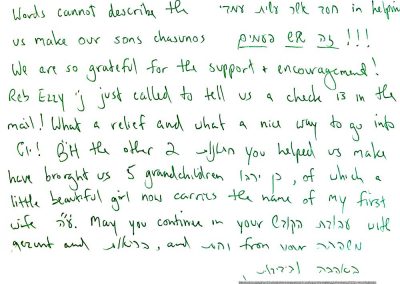 Words cannot describe the חסד אשר עשית עמדי in helping
us make our sons chasunos זה שש פעמים !!!
We are so grateful for the support + encouragement!
Reb Ezzy 'j just called to tell us a check is in the
mail! What a relief and what a nice way to go into
יו"ט! B"H the other 2 חתונות you helped us make
have brought us 5 grandchildren כן ירבו, of which a
little beautiful girl now carries the name of my first
wife ע"ה. May you continue in your עבודת הקודש with
gezunt and בריאות, and נחת from your משפחה
בהערכה וידידות,